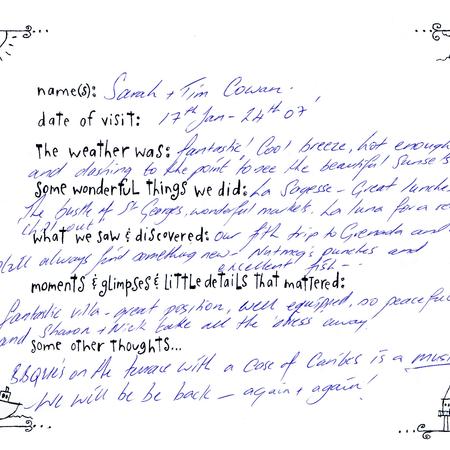 name(s): Sarah + Tim Cowan.
date of visit: 17th Jan - 24th 07'
The weather was: fantastic! Cool breeze, hot enough
and dashing to the point to see the beautiful Sunsets
Some wonderful things we did: La Sagesse - Great lunches
The bustle of St Georges, wonderful markets. La Luna for a re
chill out
what we saw & discovered: our fifth trip to Grenada and
still always find something new - Nutmeg's punches and
excellent fish -
moments & glimpses & little details that mattered:
fantastic villa - great position, well equipped, so peaceful
and Sharon + Nick take all the stress away.
Some other thoughts...
BBQ's on the terrace with a case of Caribes is a mus
- We will be be back - again + again!